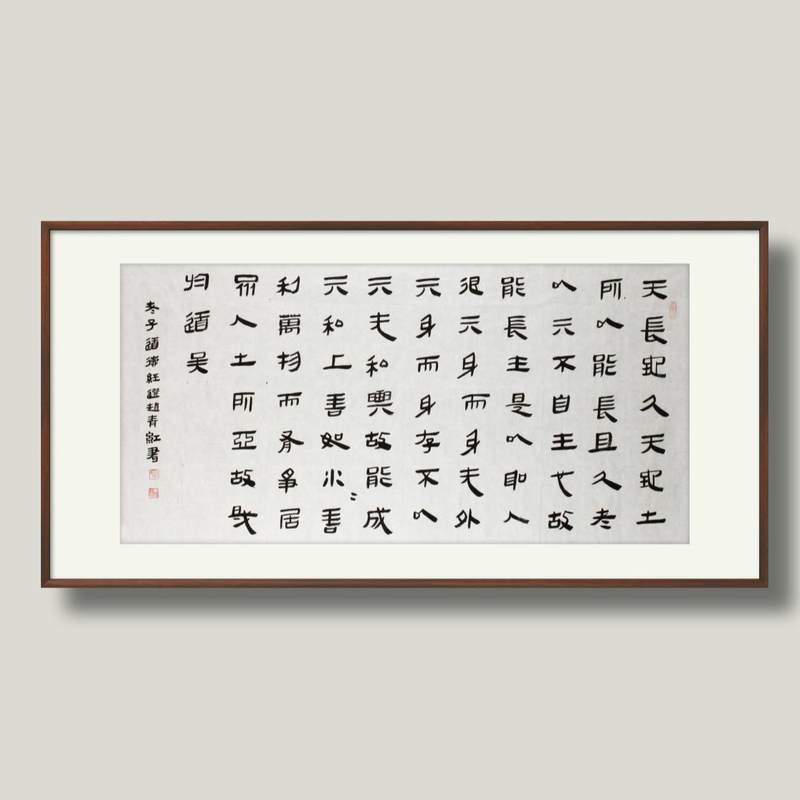 天長地久天地之
所以能長且久者
以亓不自生也故
能長生是以聖人
退亓身而身先外
亓身而身存不以
亓无私與故能成
亓私上善如水=善
利萬物而有爭居
眾人之所亞故幾
於道矣
老子道德經趙青紅書